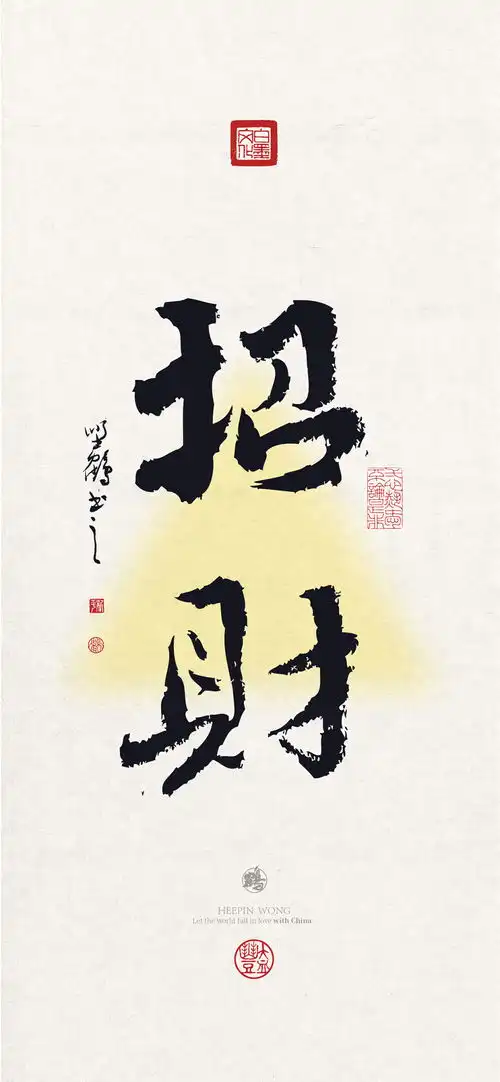 白墨
文化
招
財
鶴书之
HEEPIN WONG
Let the world fall in love with China